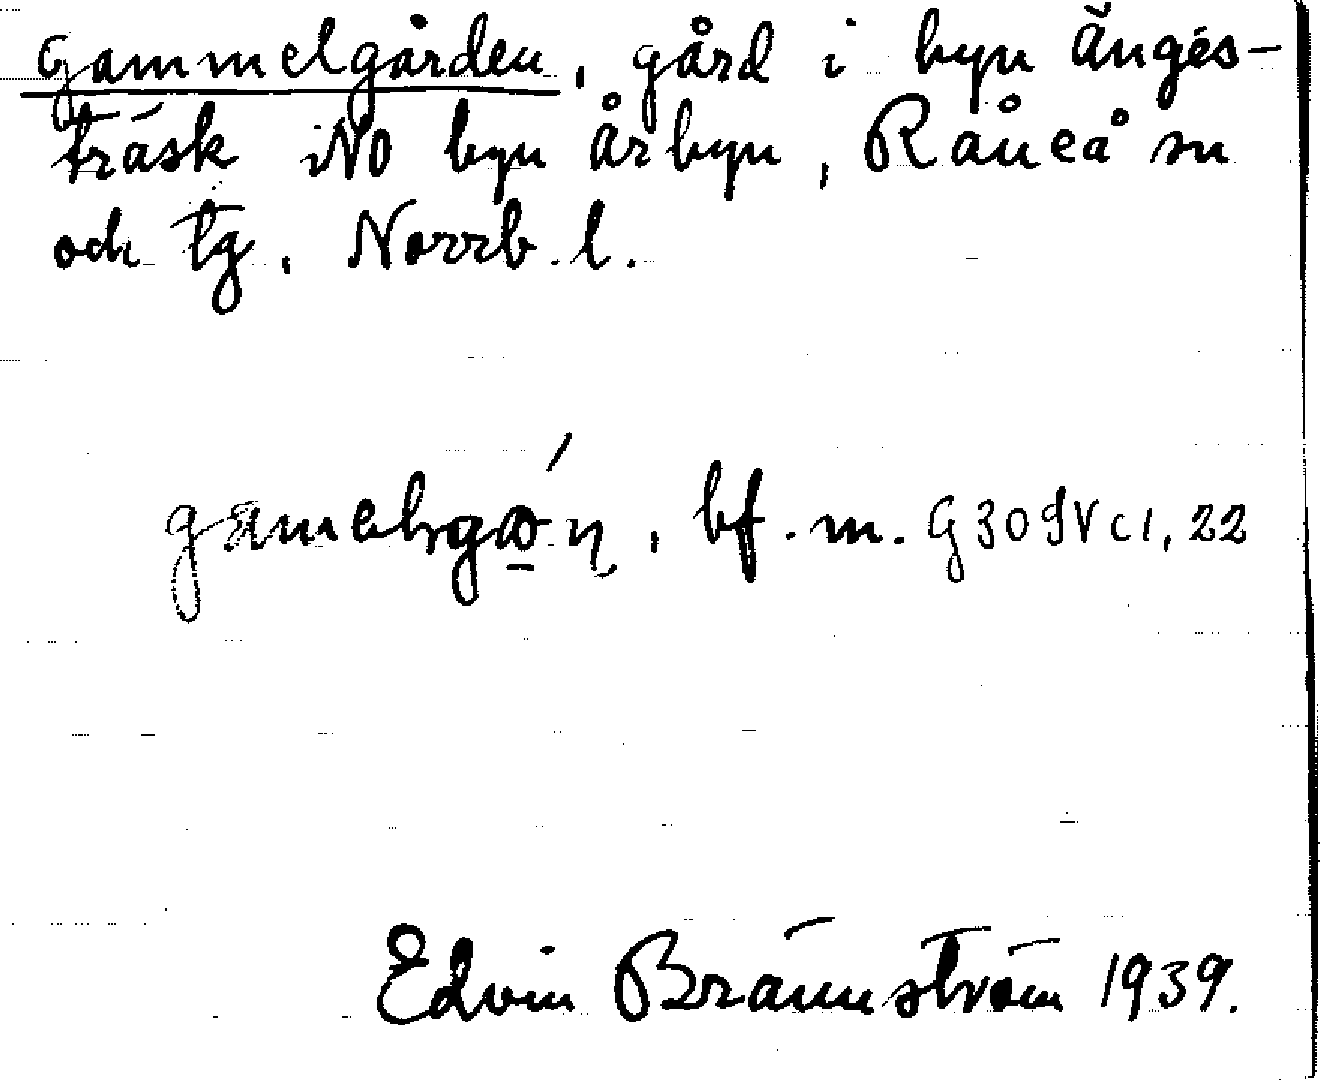 Gammelgården, gård i byn Änges-
träsk i NO byn Årbyn, Råneå sn
och tg, Norrb. l.
bf. m. G 30 9 V c 1, 22
Edvin Brännström 1939.